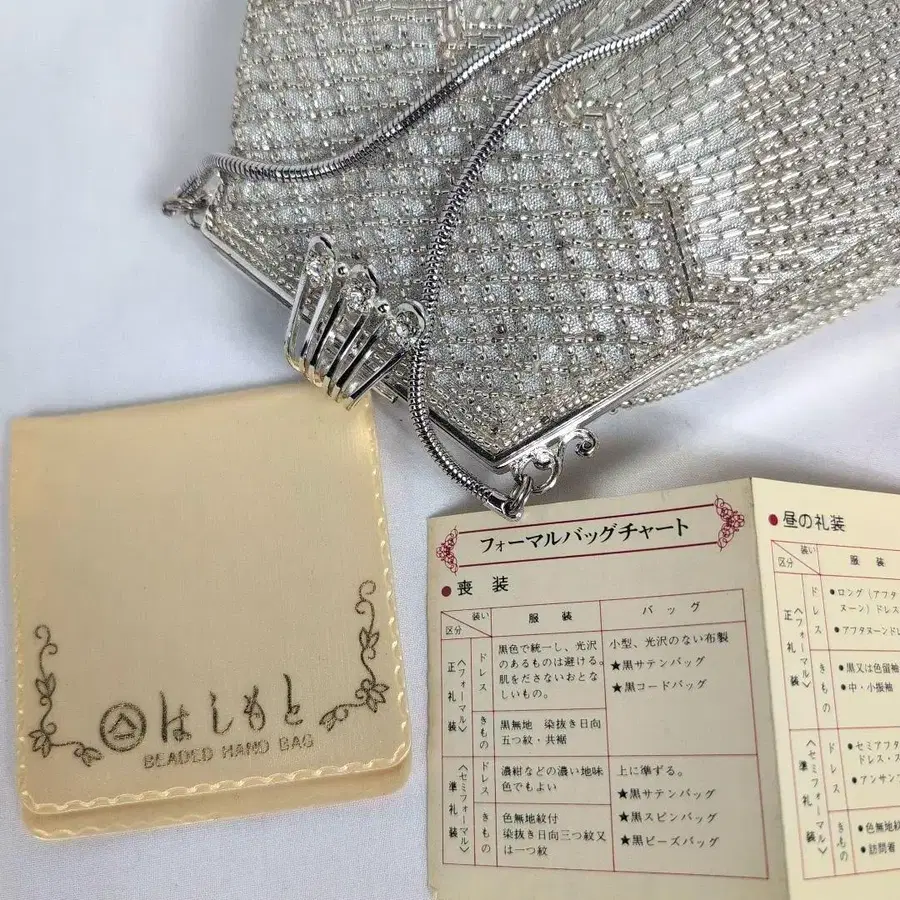 はしもと
BEADED HAND BAG
フォーマルバッグチャート
●喪 装
装い
区分
服 装
バ ッ グ
正礼装
〈フォーマル〉
ドレス
黒色で統一し、光沢
のあるものは避ける。
肌をださないおとな
しいもの。
小型、光沢のない布製
★黒サテンバッグ
★黒コードバッグ
きもの
黒無地 染抜き日向
五つ紋・共裾
準礼装
〈セミフォーマル〉
ドレス
濃紺などの濃い地味
色でもよい
上に準ずる。
★黒サテンバッグ
★黒スピンバッグ
★黒ビーズバッグ
きもの
色無地紋付
染抜き日向三つ紋又
は一つ紋
●昼の礼装
装い
区分
服 装
正礼装
〈フォーマル〉
ドレス
●ロング(アフタ
ヌーン)ドレス
●アフタヌーンドレ
きもの
●黒又は色留袖
●中・小振袖
準礼装
〈セミフォーマル〉
ドレス
●セミアフタ
ドレス・ス
●アンサン
きもの
●色無地紋
●訪問着